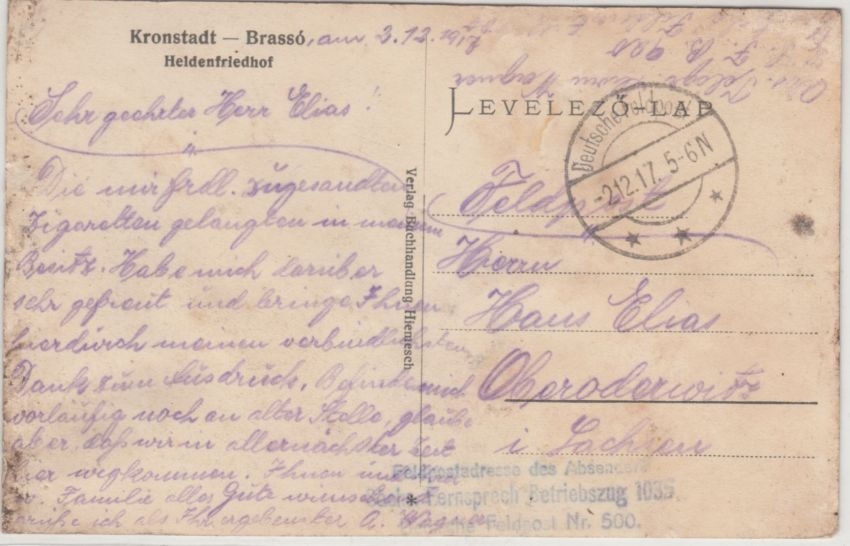 Kronstadt — Brassó, am 2.12.
Heldenfriedhof
Sehr geehrter Herr Elias!
Die mir frdl. zugesandten
Zigaretten gelangten in meinen
Besitz. Habe mich darüber
sehr gefreut und bringe Ihnen
hierdurch meinen verbindlichsten
Dank zum Ausdruck. Befinde mich
vorläufig noch an alter Stelle, glaube
aber, daß wir in allernächster Zeit
hier wegkommen. Ihnen und Ihrer
w. Familie alles Gute wünschend
grüße ich als Ihr ergebenster A. Wagner
Verlag Buchhandlung Hiemesch
*
Wagner
920
LEVELEZŐ-LAP
Deutsche Feldpost
-2.12.17. 5-6N
Feldpost
Herrn
Hans Elias
Oberoderwitz
i. Sachsen
Feldpostadresse des Absenders
Fernsprech Betriebszug 1035
Feldpost Nr. 500.